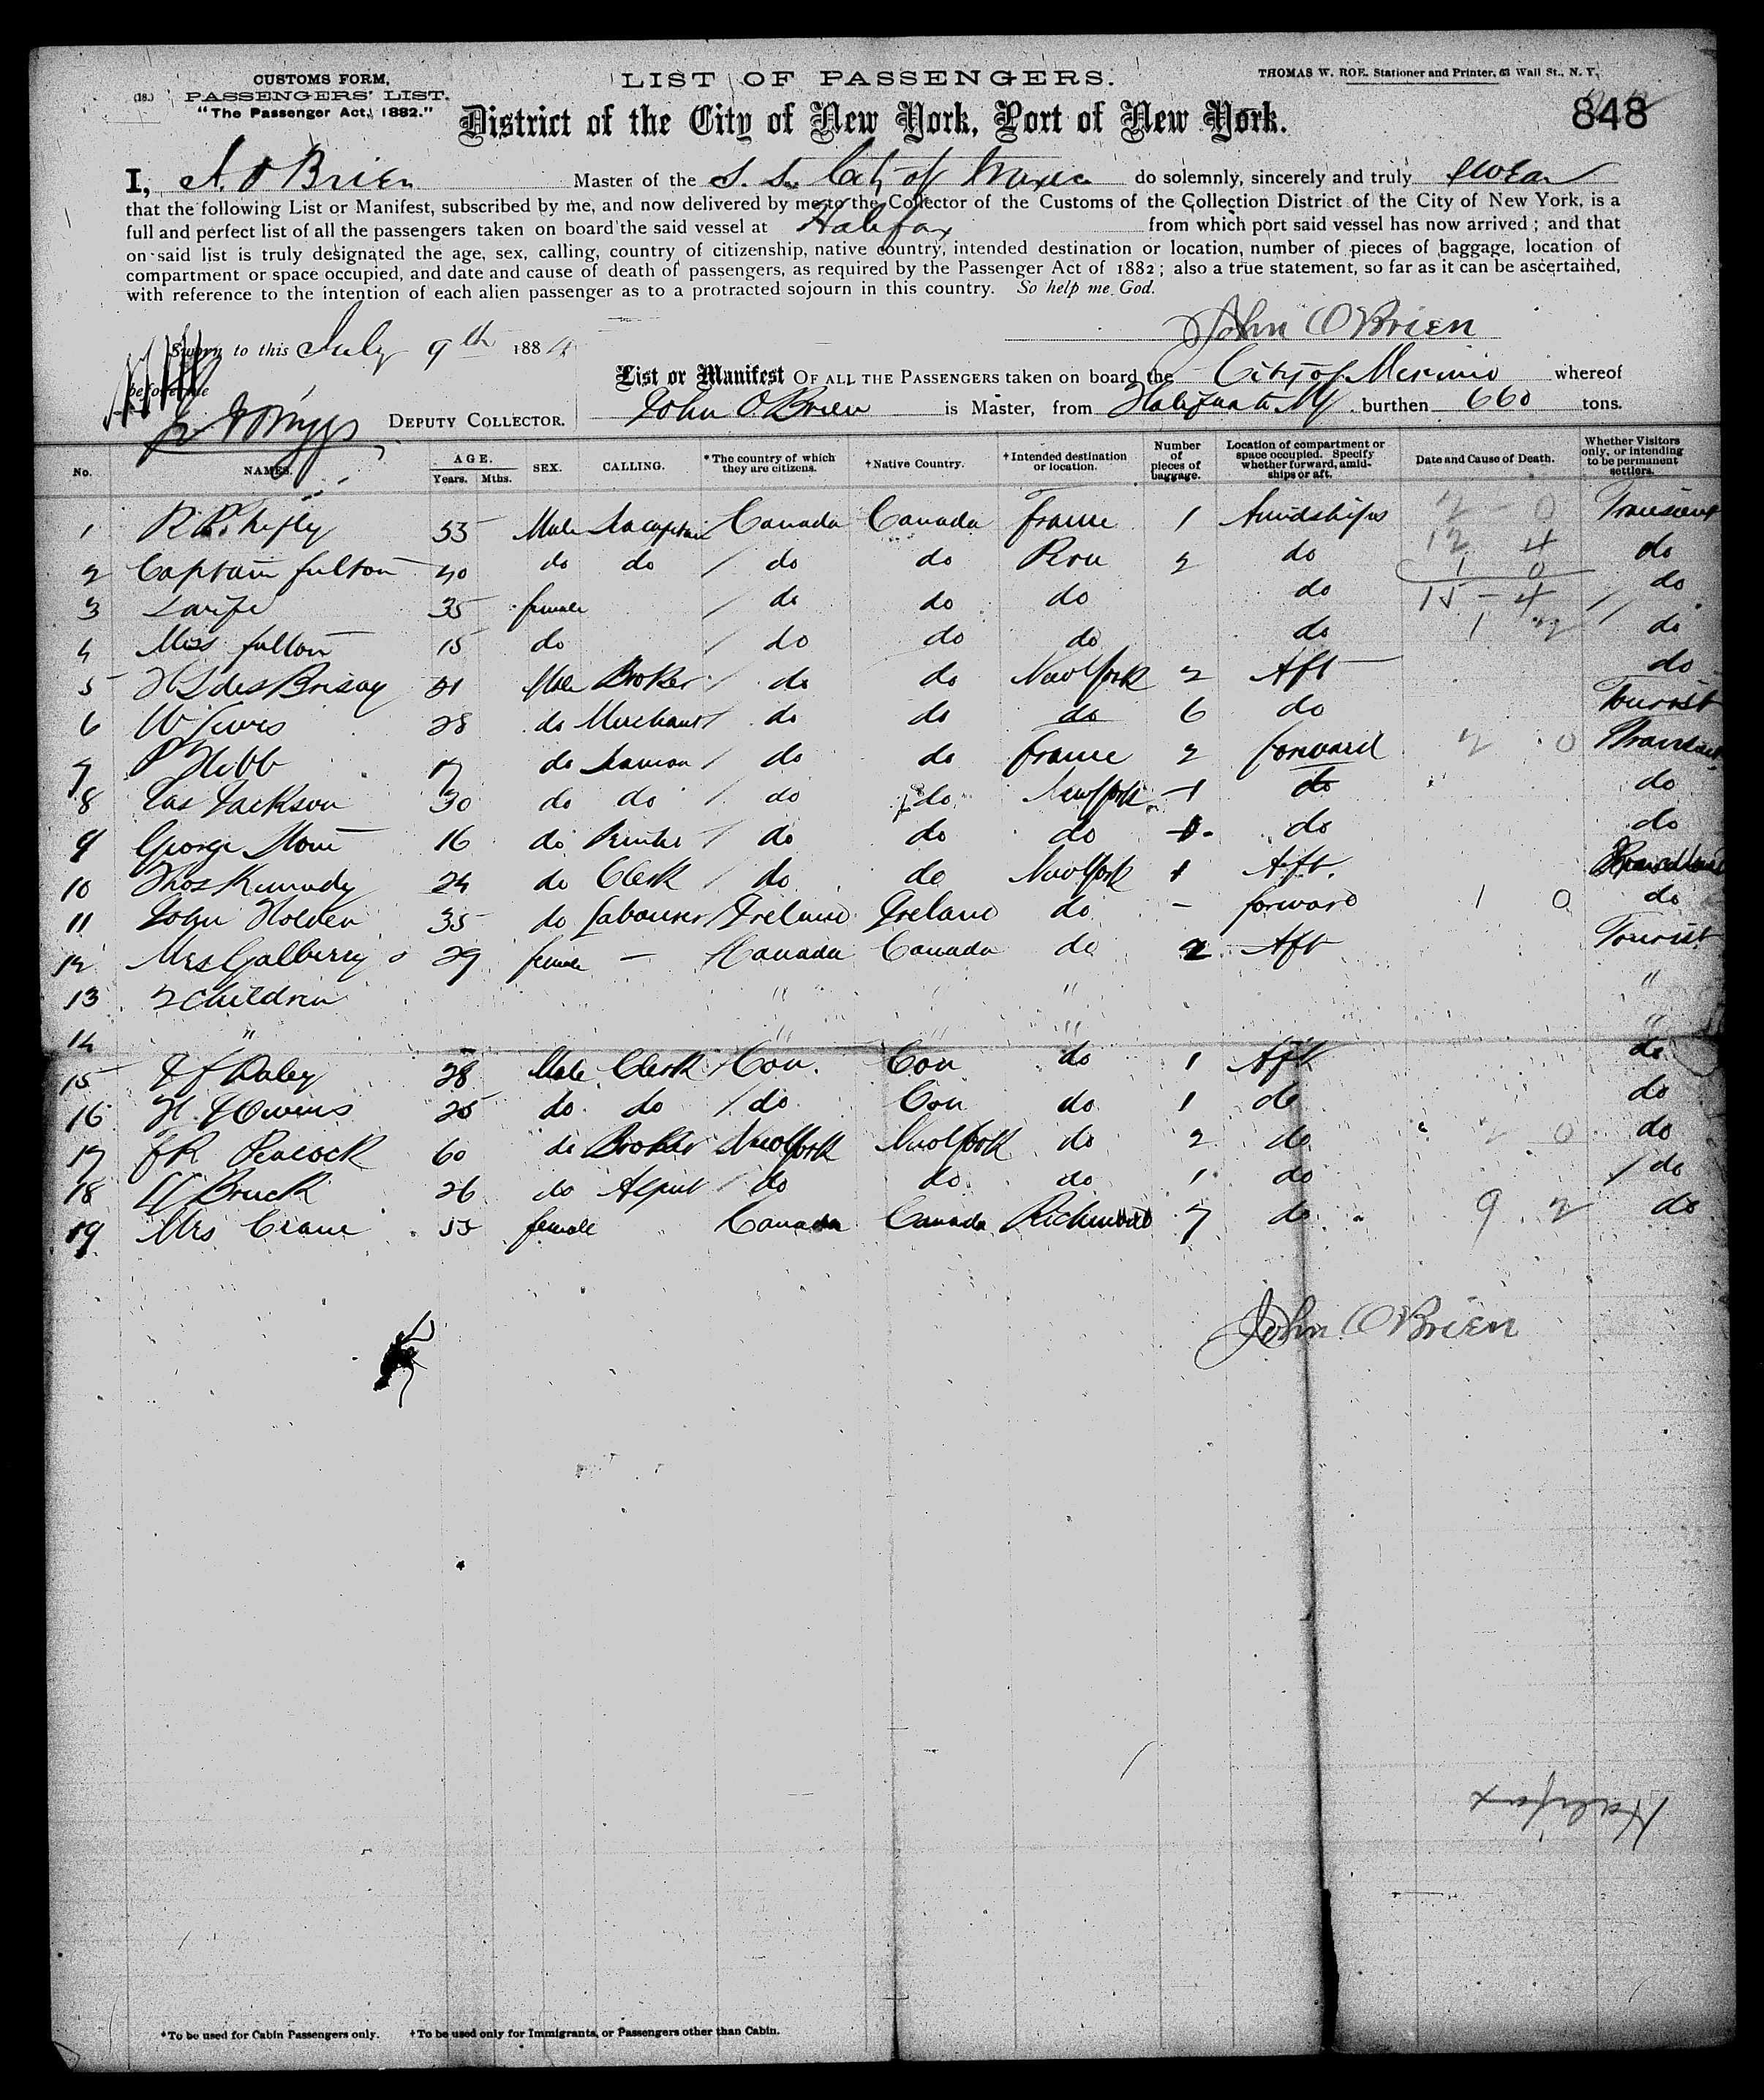 CUSTOMS FORM,
(18.) PASSENGERS' LIST.
"The Passenger Act, 1882."
LIST OF PASSENGERS.
THOMAS W. ROE, Stationer and Printer, 63 Wall St., N. Y.
848
District of the City of New York, Port of New York.
I, J. O Brien Master of the S. S. City of Mexico do solemnly, sincerely and truly swear
that the following List or Manifest, subscribed by me, and now delivered by me to the Collector of the Customs of the Collection District of the City of New York, is a
full and perfect list of all the passengers taken on board the said vessel at Halifax from which port said vessel has now arrived ; and that
on said list is truly designated the age, sex, calling, country of citizenship, native country, intended destination or location, number of pieces of baggage, location of
compartment or space occupied, and date and cause of death of passengers, as required by the Passenger Act of 1882 ; also a true statement, so far as it can be ascertained,
with reference to the intention of each alien passenger as to a protracted sojourn in this country. So help me God.
John O'Brien
Sworn to this July 9th 1884
before me
List or Manifest OF ALL THE PASSENGERS taken on board the City of whereof
DEPUTY COLLECTOR. John O'Brien is Master, from Halifax burthen 660 tons.
No. NAMES. AGE. Years. Mths. SEX. CALLING. *The country of which they are citizens. †Native Country. †Intended destination or location. Number of pieces of baggage. Location of compartment or space occupied. Specify whether forward, amidships or aft. Date and Cause of Death. Whether Visitors only, or intending to be permanent settlers.
1 R. Male Canada Canada France 1 Amidships 2 - 0 Transient
2 Captain Fulton 40 do do do do Peru 2 do 12 4 do
3 35 female do do do do 1 0 do
15 - 4
4 Miss Fulton 15 do do do do do 1 2 do
5 H des Brisay 21 Male Broker do do New York 2 Aft do
6 W 28 do Merchant do do do 6 do Tourist
7 17 do Seaman do do France 2 forward 2 0 Transient
8 Jas Jackson 30 do do do do New York 1 do do
9 George 16 do do do do do do
10 Thos Kennedy 24 do Clerk do do New York 1 Aft.
11 John Holden 35 do Labourer Ireland Ireland do - forward 1 0 do
12 Mrs Galberry 29 female - Canada Canada do 2 Aft Tourist
13 2 Children " " " "
14 " " " " "
15 Daley 28 Male Clerk Can. Can do 1 Aft do
16 H. Owens 25 do do do Can do 1 do do
17 Peacock 60 do Broker New York New York do 2 do 2 0 do
18 26 do Agent do do do 1 do do
19 Mrs Crane 55 female Canada Canada Richmond 7 do 9 2 do
John O'Brien
Halifax
*To be used for Cabin Passengers only. †To be used only for Immigrants, or Passengers other than Cabin.